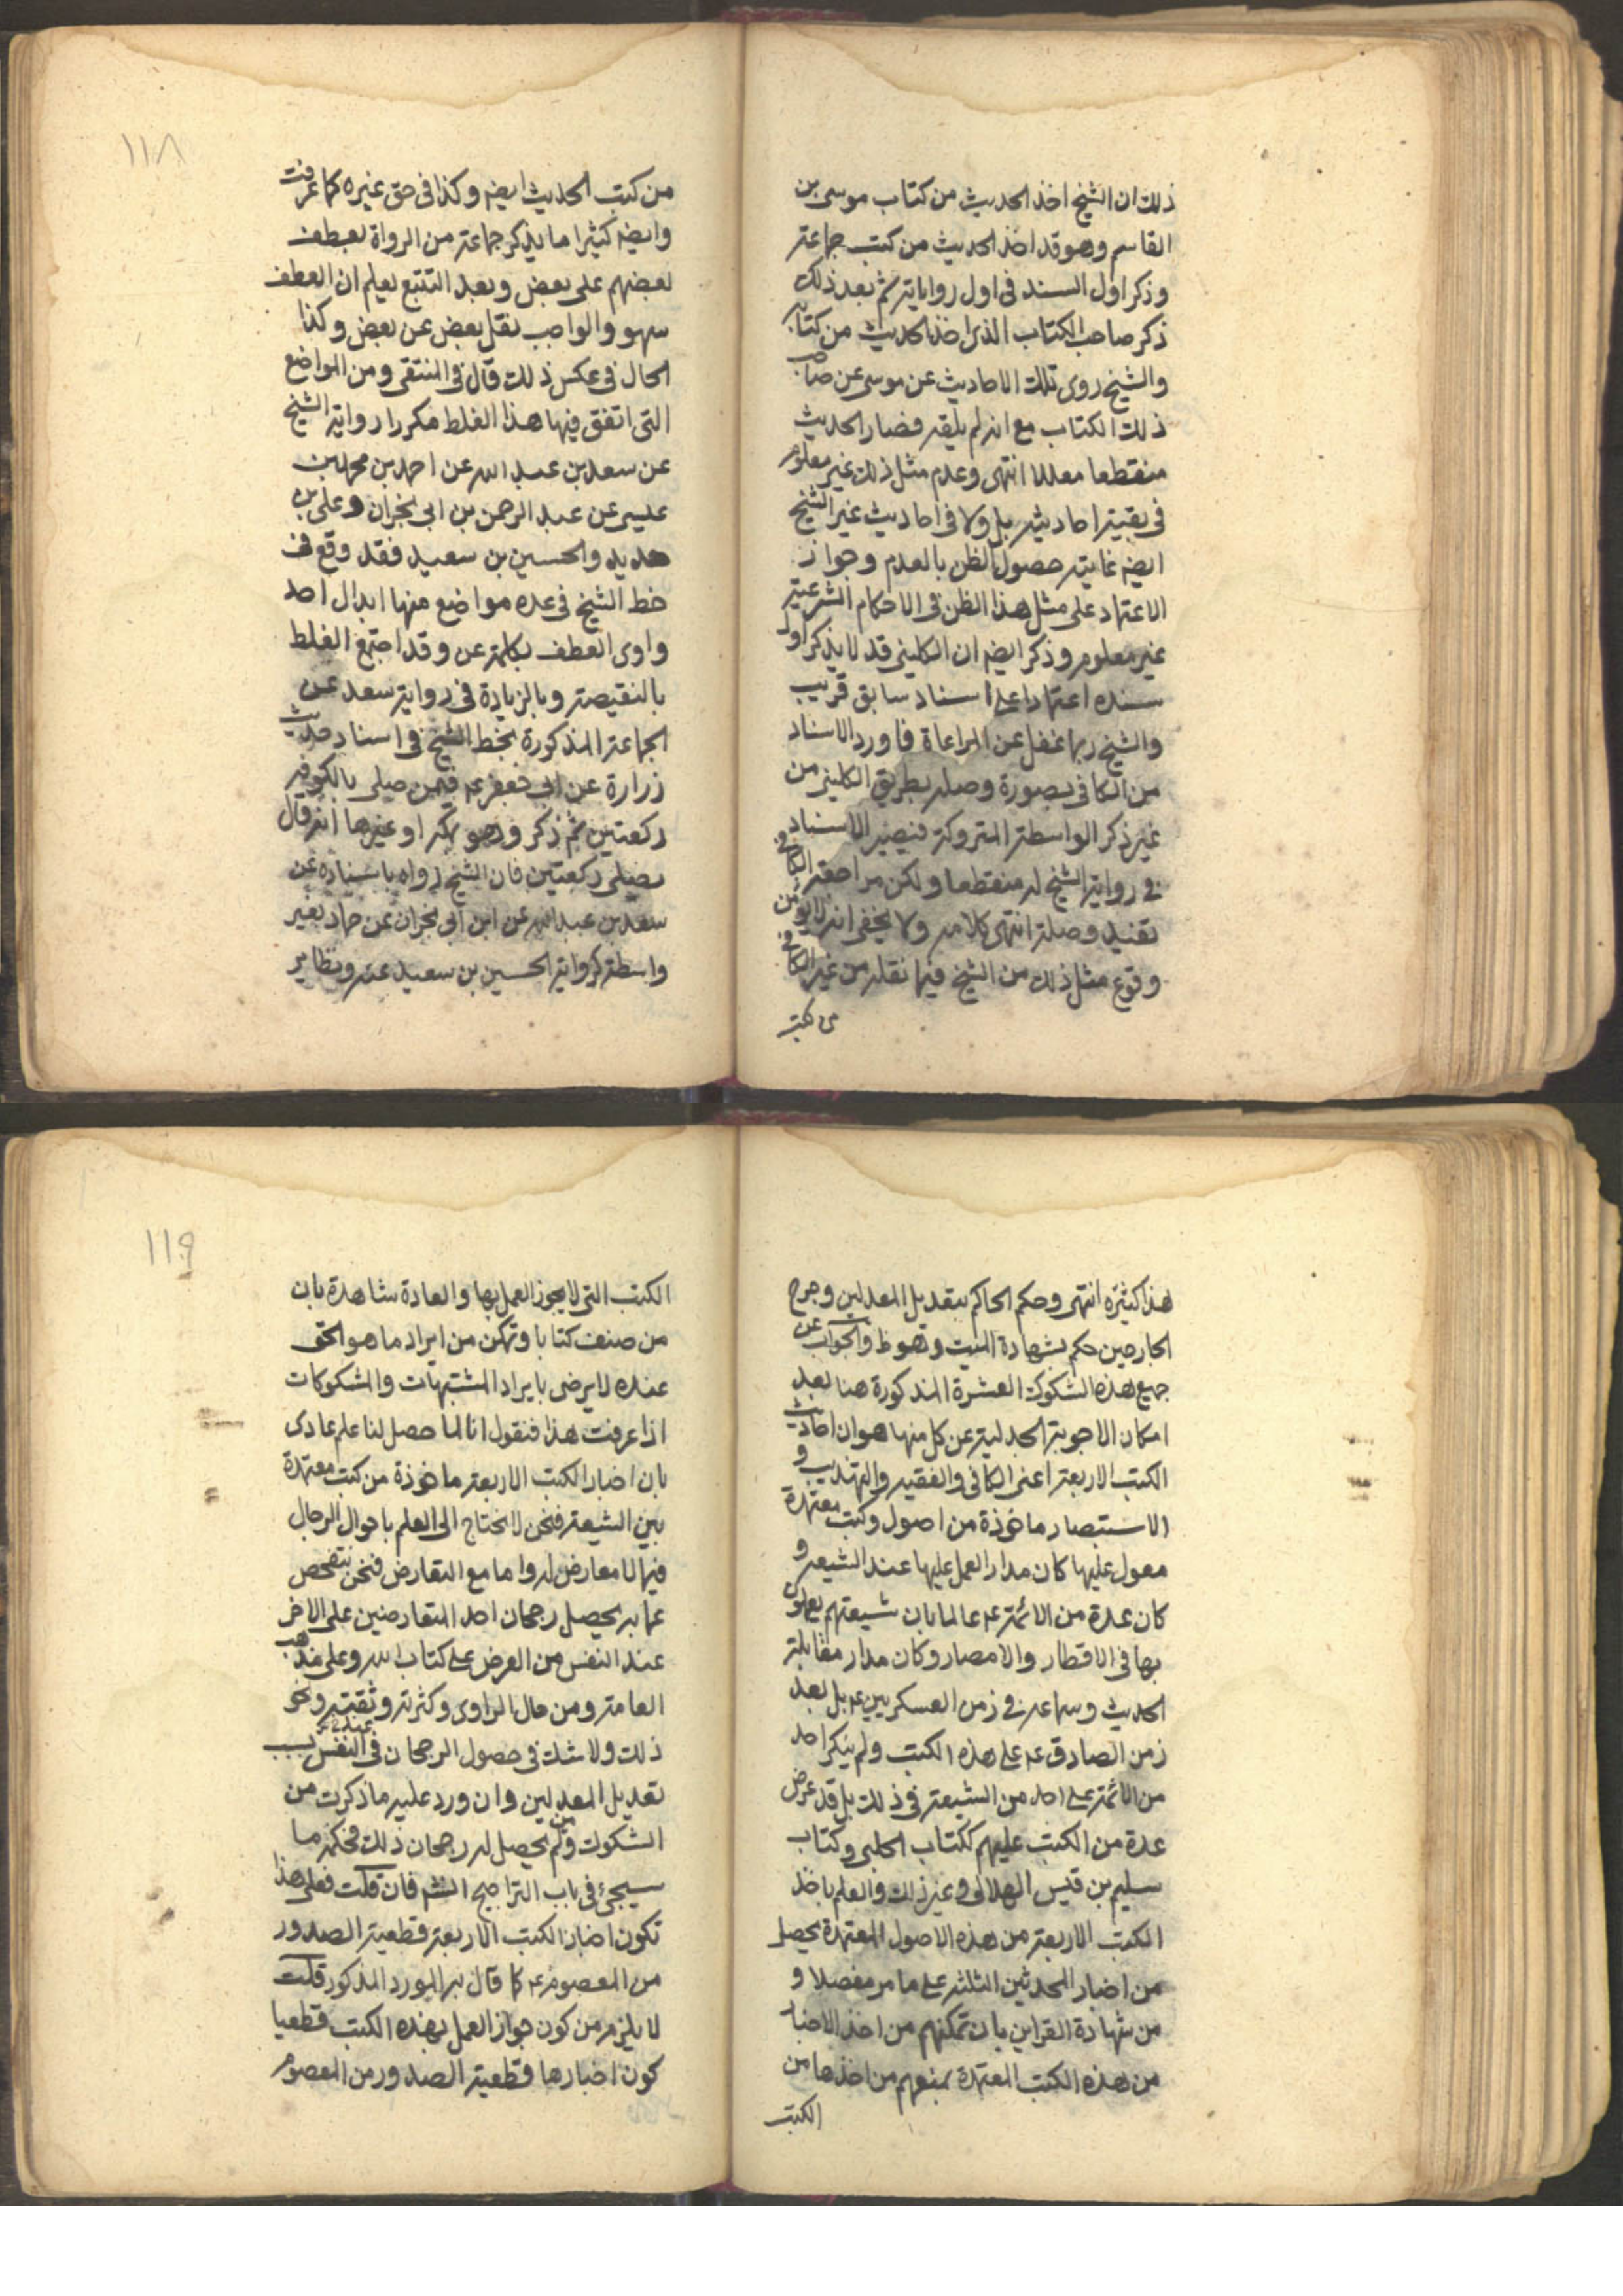 ذلك ان الشيخ اخذ الحديث من كتاب موسى بن
القاسم وهو قد اخذ الحديث من كتب جماعة
وذكر اول السند فى اول رواياته ثم بعد ذلك
ذكر صاحب الكتاب الذى اخذ الحديث من كتابه
والشيخ روى تلك الاحاديث عن موسى عن صاحب
ذلك الكتاب مع انه لم يلقه فصار الحديث
منقطعا معللا انتهى وعدم مثل ذلك غير معلوم
فى بقية احاديثه بل ولا فى احاديث غير الشيخ
ايضه غايته حصول الظن بالعدم وجواز
الاعتماد على مثل هذا الظن فى الاحكام الشرعية
غير معلوم وذكر ايضه ان الكلينى قد لا يذكر اول
سنده اعتمادا على اسناد سابق قريب
والشيخ ربما غفل عن المراعاة فاورد الاسناد
من الكافى بصورة وصله بطريق الكلينى من
غير ذكر الواسطة المتروكة فيصير الاسناد
فى رواية الشيخ له منقطعا ولكن مراجعة الكافى
تفيد وصلة انتهى كلامه ولا يخفى انه لا يؤمن
وقوع مثل ذلك من الشيخ فيما نقله من غير الكافى
من كتب
١١٨
من كتب الحديث ايضه وكذا فى حق غيره كما عرفت
وايضه كثيرا ما يذكر جماعة من الرواة بعطف
بعضهم على بعض وبعد التتبع يعلم ان العطف
سهو والواجب نقل بعض عن بعض وكذا
الحال فى عكس ذلك قال فى المنتقى ومن المواضع
التى اتفق فيها هذا الغلط مكررا رواية الشيخ
عن سعد بن عبد الله عن احمد بن محمد بن
عيسى عن عبد الرحمن بن ابى نجران وعلى بن
حديد والحسين بن سعيد فقد وقع فى
خط الشيخ فى عدة مواضع منها ابدال احد
واوى العطف بكلمة عن وقد اجتمع الغلط
بالنقيصة وبالزيادة فى رواية سعد عن
الجماعة المذكورة بخط الشيخ فى اسناد حديث
زرارة عن ابى جعفر عم فيمن صلى بالكوفة
ركعتين ثم ذكر وهو بمكة او غيرها انه قال
يصلى ركعتين فان الشيخ رواه باسناده عن
سعد بن عبد الله عن ابن ابى نجران عن حماد بغير
واسطة كرواية الحسين بن سعيد عنه ونظاير
هذا كثيرة انتهى وحكم الحاكم بتعديل المعدلين وجرح
الجارحين حكم بشهادة الميت وهو ظ والجواب عن
جميع هذه الشكوك العشرة المذكورة هنا بعد
امكان الاجوبة الجدلية عن كل منها هو ان احاديث
الكتب الاربعة اعنى الكافى والفقيه والتهذيب و
الاستبصار ماخوذة من اصول وكتب معتمدة
معول عليها كان مدار العمل عليها عند الشيعة و
كان عدة من الائمة عم عالما بان شيعتهم يعملون
بها فى الاقطار والامصار وكان مدار مقابلة
الحديث وسماعه فى زمن العسكريين عم بل بعد
زمن الصادق عم على هذه الكتب ولم ينكر احد
من الائمة على احد من الشيعة فى ذلك بل قد عرض
عدة من الكتب عليهم ككتاب الحلبى وكتاب
سليم بن قيس الهلالى وغير ذلك والعلم باخذ
الكتب الاربعة من هذه الاصول المعتمدة يحصل
من اخبار المحدثين الثلثة على ما مر مفصلا و
من شهادة القراين بان تمكنهم من اخذ الاخبار
من هذه الكتب المعتمدة يمنعهم من اخذها من
الكتب
١١٩
الكتب التى لا يجوز العمل بها والعادة شاهدة بان
من صنف كتابا وتمكن من ايراد ما هو الحق
عنده لا يرضى بايراد المشتبهات والمشكوكات
اذا عرفت هذا فنقول انا لما حصل لنا علم عادى
بان اخبار الكتب الاربعة ماخوذة من كتب معتمدة
بين الشيعة فنحن لا نحتاج الى العلم باحوال الرجال
فيما لا معارض له واما مع التعارض فنحن نتفحص
عما به يحصل رجحان احد المتعارضين على الاخر
عند النفس من العرض على كتاب الله وعلى مذهب
العامة ومن حال الراوى وكثرته وثقته ونحو
ذلك ولا شك فى حصول الرجحان فى النفس بسبب
تعديل المعدلين وان ورد عليه ما ذكرت من
الشكوك ومن لم يحصل له رجحان ذلك فحكمه ما
سيجئ فى باب التراجيح انشم فان قلت فعلى هذا
تكون اخبار الكتب الاربعة قطعية الصدور
من المعصوم عم كما قال به المورد المذكور قلت
لا يلزم من كون جواز العمل بهذه الكتب قطعيا
كون اخبارها قطعية الصدور من المعصوم